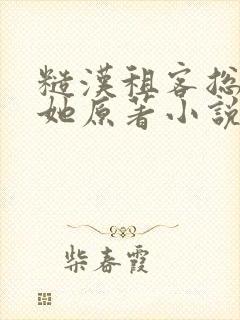 糙漢租客总
她原著小說
柴春霞